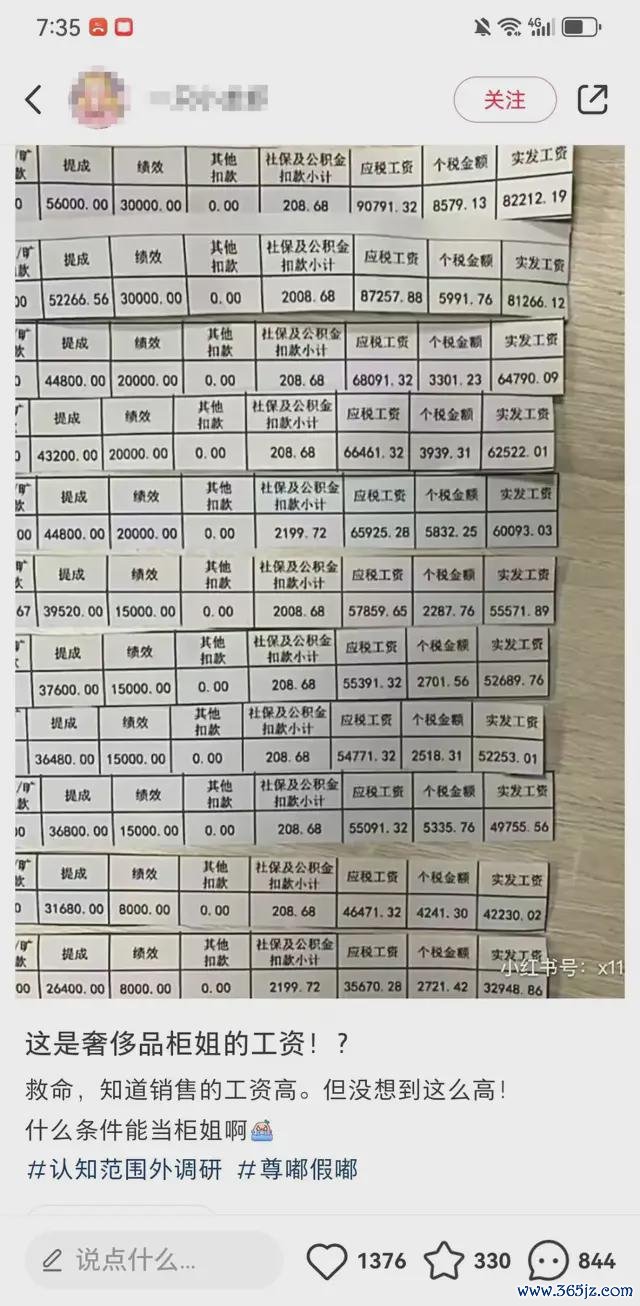 7:35
4G
关注
/旷 提成 绩效 其他 社保及公积金 应税工资 个税金额 实发工资
款 扣款 扣款小计
0 56000.00 30000.00 0.00 208.68 90791.32 8579.13 82212.19
/旷 提成 绩效 其他 社保及公积金 应税工资 个税金额 实发工资
款 扣款 扣款小计
00 52266.56 30000.00 0.00 2008.68 87257.88 5991.76 81266.12
旷 提成 绩效 其他 社保及公积金 应税工资 个税金额 实发工资
款 扣款 扣款小计
0 44800.00 20000.00 0.00 208.68 68091.32 3301.23 64790.09
提成 绩效 其他 社保及公积金 应税工资 个税金额 实发工资
扣款 扣款小计
0 43200.00 20000.00 0.00 208.68 66461.32 3939.31 62522.01
旷 提成 绩效 其他 社保及公积金 应税工资 个税金额 实发工资
款 扣款 扣款小计
00 44800.00 20000.00 0.00 2199.72 65925.28 5832.25 60093.03
/旷 提成 绩效 其他 社保及公积金 应税工资 个税金额 实发工资
款 扣款 扣款小计
67 39520.00 15000.00 0.00 2008.68 57859.65 2287.76 55571.89
提成 绩效 其他 社保及公积金 应税工资 个税金额 实发工资
扣款 扣款小计
37600.00 15000.00 0.00 208.68 55391.32 2701.56 52689.76
提成 绩效 其他 社保及公积金 应税工资 个税金额 实发工资
扣款 扣款小计
36480.00 15000.00 0.00 208.68 54771.32 2518.31 52253.01
/旷 提成 绩效 其他 社保及公积金 应税工资 个税金额 实发工资
款 扣款 扣款小计
00 36800.00 15000.00 0.00 208.68 55091.32 5335.76 49755.56
旷 提成 绩效 其他 社保及公积金 应税工资 个税金额 实发工资
款 扣款 扣款小计
0 31680.00 8000.00 0.00 208.68 46471.32 4241.30 42230.02
/旷 提成 绩效 其他 社保及公积金 应税工资 个税金额 实发工资
款 扣款 扣款小计
00 26400.00 8000.00 0.00 2199.72 35670.28 2721.42 32948.86
小红书号：x11
这是奢侈品柜姐的工资！？
救命，知道销售的工资高。但没想到这么高！
什么条件能当柜姐啊
#认知范围外调研 #尊嘟假嘟
说点什么... 1376 330 844
www.365jz.com